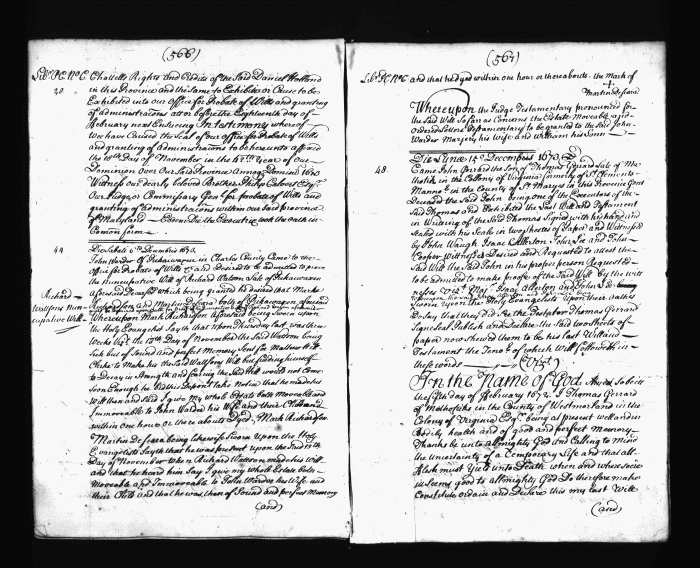 (566)
Lib: P.C. No. C Chattells Rights and Credits of the Said Daniel Holland
20 in this Province and the Same to Exhibit or Cause to be
Exhibited into our Office for Probate of Wills and granting
of administracons att or before the Eighteenth day of
February next Ensueing In testimony whereof
We have Caused the Seal of our Office for Probate of Wills
and granting of administracons to be hereunto affixed
the 18th Day of November in the 42th Year of our
Dominion Over our Said Province Annoq Domini 1673
Witness our dearly beloved Brother Philip Calvert Esqr
Our Judge or Commissary Genll for probate of Wills and
granting of administracons within our said province
of Maryland the Executrix took the oath in
Common form
44 Die Sabati 6th Decembris 1673
John Warder of Pickawaxen in Charles County Came to the
Office for Probate of Wills &c and desired to be admitted to prove
the nuncupative Will of Richard Watson late of Pickawaxen
aforesaid Deceased which being granted he desired that Marke
Richardson and Martin de Seara both of Pickawaxen aforesaid
Richard
Wattsons Nun-
cupative Will
Whereupon Mark Richardson aforesaid being Sworn upon
the Holy Evangelist Sayth that upon Thursday last was three
Weeks being the 13th Day of November the Said Wattson being
Sick but of Sound and perfect Memory Sent for
Clerke to Make his the Said Wattsons Will but finding himself
to Decay in Strength and fearing the Said Hill would not Come
Soon Enough he Bid this Deponent take Notice that he made his
Will then and that I give my whole Estate both Moveable and
Immoveable to John Warder his Wife and their Child and
within one hour or there abouts Dyed, Mark Richardson
Martin De Seara being likewise Sworn upon the Holy
Evangelists Sayth that he was present upon the
Day of November when Richard Wattson made his Will
and that he heard him Say I give my whole Estate both
Moveable and Immoveable to John Warder his Wife and
their Child and that he was then of Sound and perfect Memory
(and)
(567)
Lib: P.C. No. C and that he dyed within one hour or thereabouts. the Mark of
+
Martin de Seara
Whereupon the Judge Testamentary pronounced for
the Said Will So far as Concerns the Estate Moveable and
Ordered Letters Testamentary to be granted to the Said John
Warder Marjery his Wife and William his Sonn
Die Lunæ 15o Decembris 1673
48 Came John Gerrard the Son of Thomas Gerrard Late of Ma-
thotick in the Collony of Virginia formerly of St Clements
Mannor in the County of St Marys in this Province Gent
Deceased the Said John being one of the Executors of the
Said Thomas and Exhibited the Last Will and Testament
in Writeing of the Said Thomas Signed with his hand and
Sealed with his Seale in two Sheets of Paper and Witnessed
by John Waugh Isaac Allerton John Lee and John
Cooper Witnesses Desired and Requested to attest the
Said Will the Said John in his proper person Requested
to be admitted to make proofe of the Said Will by the witt
nesses Vizt Maj: Isaac Allerton and John Lee
Sworn upon the Holy Evangelists Upon their Oathes
Do Say that they Did See the Testator Thomas Gerrard
Signe Seal Publish and Declare the Said two Sheets of
paper now Shewed them to be his last Will and
Testament the Tenor of which Will followeth in
these words (Vizt)
In the Name of God. Amen So be it
the fifth Day of February 1672. I Thomas Gerrard
of Mathoticke in the County of Westmorland in the
Colony of Virginia Esqr: being at present well and in
Bodily health and of good and perfect memory
Thanks be unto almighty God and Calling to mind
the Uncertainty of a Temporary Life and that all
Flesh must Yield unto Death when and where soever
it Seems good to almighty God Do therefore make
Constitute ordain and Declare this my last Will
(and)